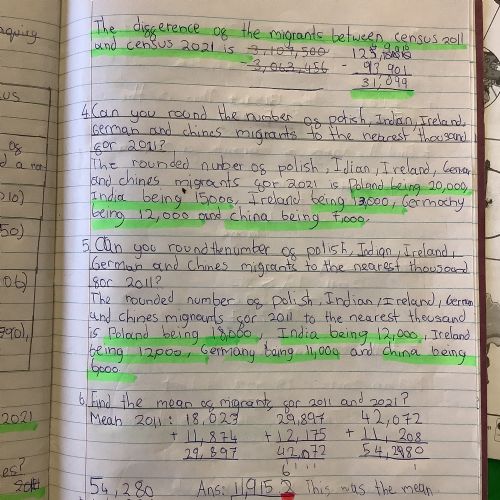 The difference of the migrants between census 2011
and census 2021 is 3,107,500
3,063,456
- 93,901
31,099
4. Can you round the number of polish, Indian, Ireland,
German and chines migrants to the nearest thousand
for 2011?
The rounded number of polish, Idian, Ireland, German
and chines migrants for 2021 is Poland being 20,000,
India being 15000, Ireland being 13,000, Germochy
being 12,000 and China being 7,000.
5. Can you round the number of polish, Indian, Ireland,
German and Chines migrants to the nearest thousand
for 2011?
The rounded number of polish, Indian, Ireland, German
and Chines migrants for 2011 to the nearest thousand
is Poland being 18,000, India being 12,000, Ireland
being 12000, Germany being 11,000 and China being
6000.
6. Find the mean of migrants for 2011 and 2021?
Mean 2011: 18,023 29,897 42,072
+ 11,874 + 12,175 + 11,208
29,897 42,072 54,280
54,280 Ans: 11915.2 This was the mean